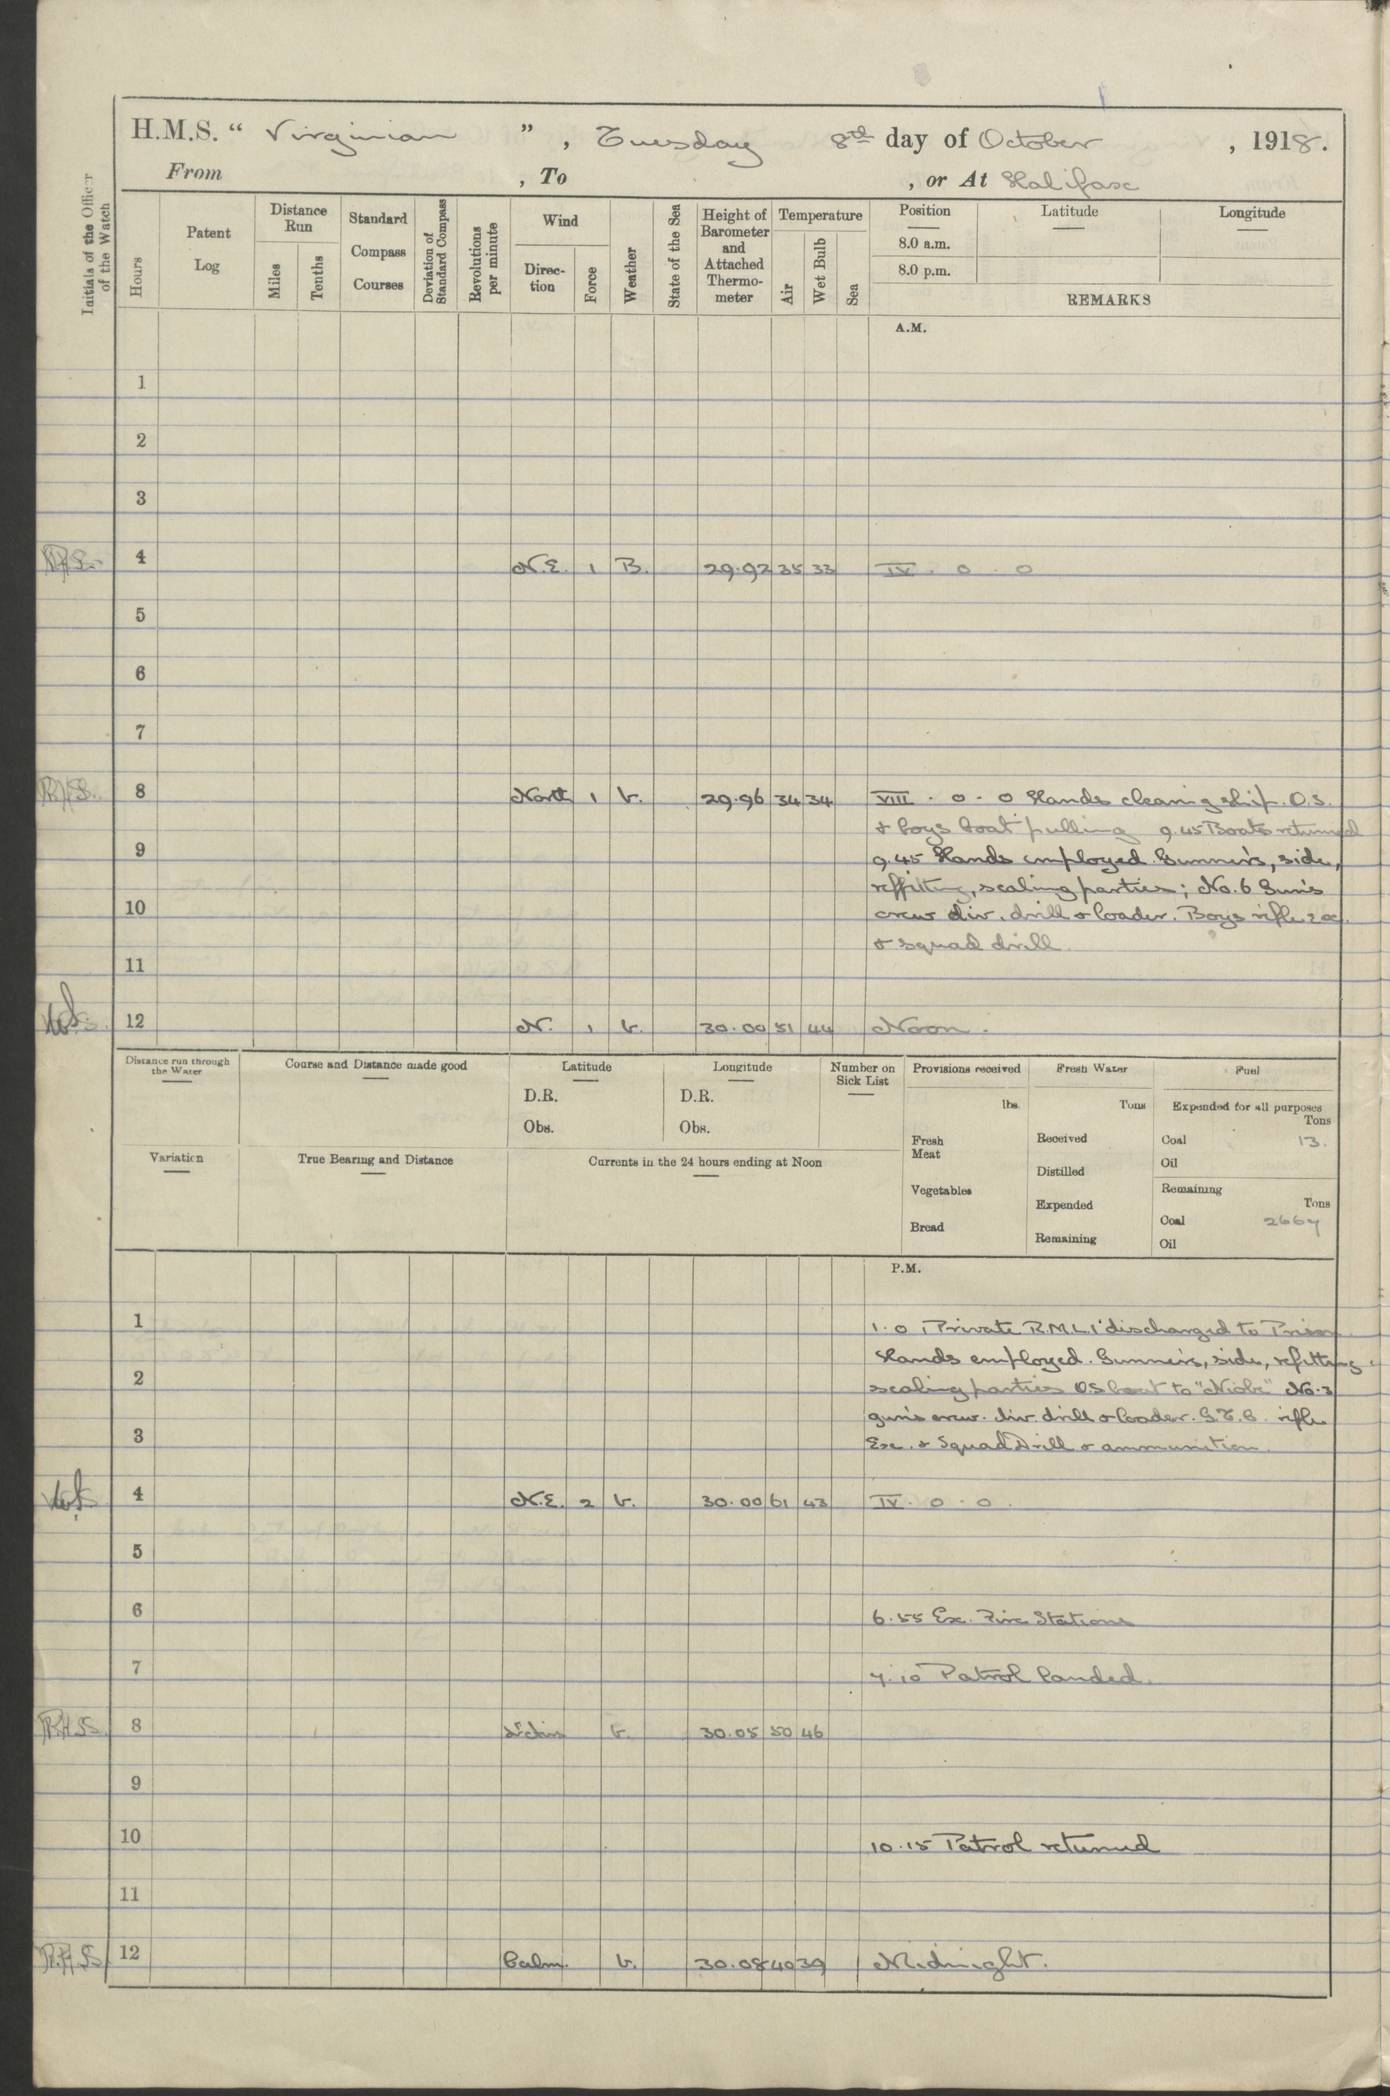 H.M.S. “ Virginian ”, Tuesday 8th day of October, 1918.
From , To , or At Halifax
Initials of the Officer of the Watch
Hours
Patent Log
Distance Run
Miles
Tenths
Standard Compass Courses
Deviation of Standard Compass
Revolutions per minute
Wind
Direc-tion
Force
Weather
State of the Sea
Height of Barometer and Attached Thermo-meter
Temperature
Air
Wet Bulb
Sea
Position
Latitude
Longitude
8.0 a.m.
8.0 p.m.
REMARKS
A.M.
1
2
3
4 N.E. 1 B. 29.92 35 33 IV . 0 . 0
5
6
7
8 North 1 b. 29.96 34 34 VIII . 0 . 0 Hands cleaning ship. O.S.
& boys boat pulling 9.45 Boats returned
9 9.45 Hands employed. Gunner's, side,
refitting, scaling parties; No. 6 Gun's
10 crew div. drill & loader. Boys rifle
& squad drill.
11
12 N. 1 b. 30.00 51 44 Noon.
Distance run through the Water
Course and Distance made good
Latitude
D.R.
Obs.
Longitude
D.R.
Obs.
Number on Sick List
Provisions received
lbs.
Fresh Meat
Vegetables
Bread
Fresh Water
Tons
Received
Distilled
Expended
Remaining
Fuel
Expended for all purposes
Tons
Coal 13.
Oil
Remaining
Tons
Coal 2667
Oil
Variation
True Bearing and Distance
Currents in the 24 hours ending at Noon
P.M.
1 1.0 1 Private R.M.L.I discharged to Prison
Hands employed. Gunner's, side, refitting.
2 scaling parties OS boat to "Niobe" No. 3
gun's crew. div. drill & loader. S.T.C. rifle
3 Exe. & Squad Drill & ammunition.
4 N.E. 2 b. 30.00 61 43 IV . 0 . 0.
5
6 6.55 Ex. Fire Stations
7 7.10 Patrol landed.
R.H.S. 8 b. 30.05 50 46
9
10 10.15 Patrol returned
11
R.H.S. 12 Calm. b. 30.08 40 39 Midnight.